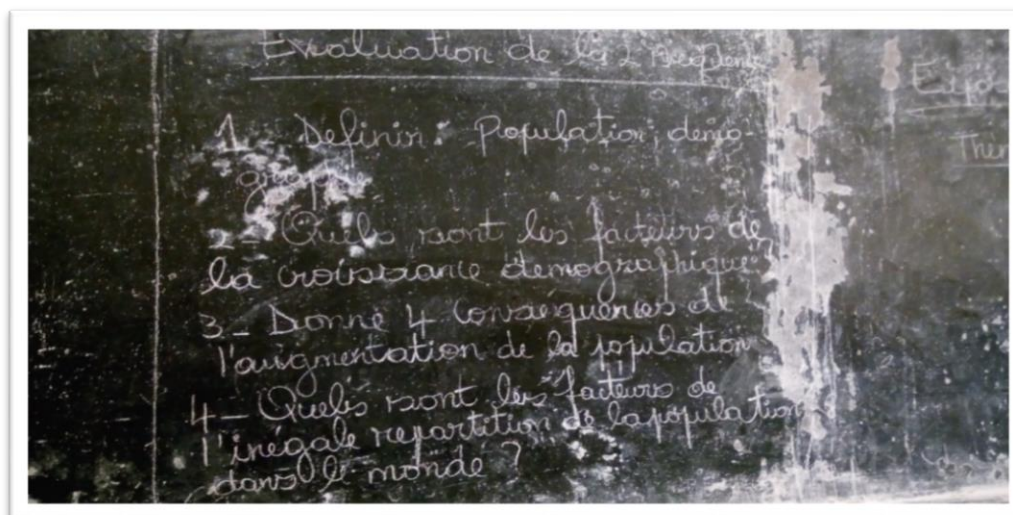 Evaluation de la 2
1_ Definir: Population, démo-
2_ Quels sont les facteurs de
la croissance démographique
3_ Donné 4 conséquences de
l'augmentation de la population
4_ Quels sont les facteurs de
l'inégale repartition de la population
dans le monde ?